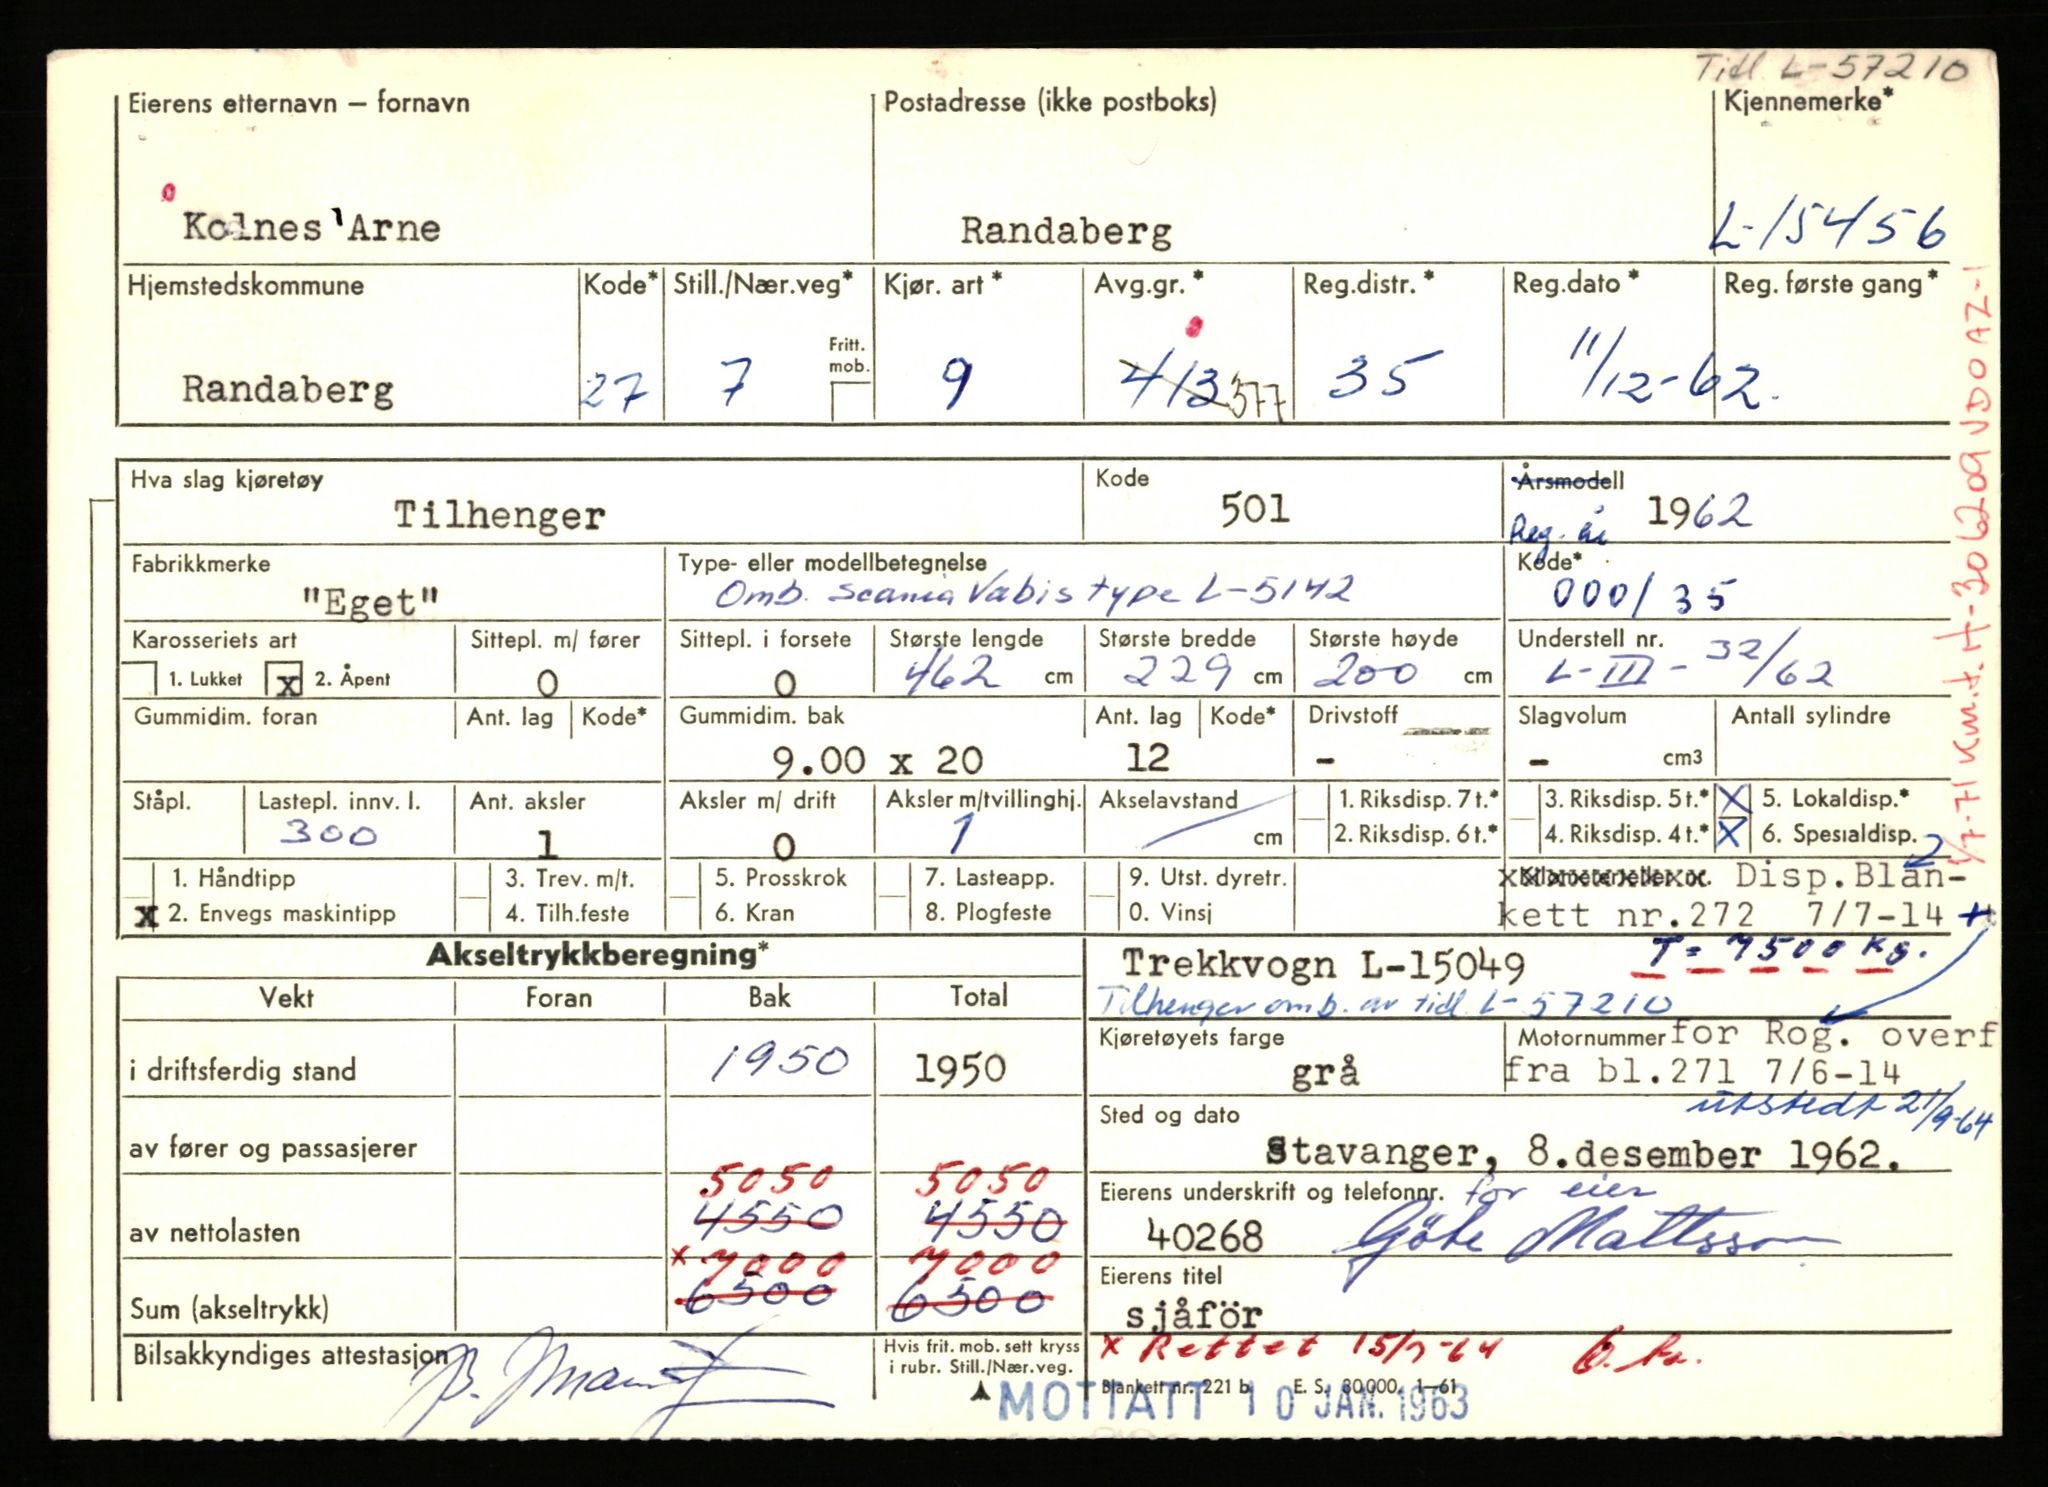 Tidl L-57210
Eierens etternavn – fornavn Postadresse (ikke postboks) Kjennemerke*
Kolnes Arne Randaberg L-15456
Hjemstedskommune Kode* Still./Nær.veg* Kjør. art* Avg.gr.* Reg.distr.* Reg.dato* Reg. første gang*
Fritt. mob.
Randaberg 27 7 9 413 577 35 11/12-62.
Hva slag kjøretøy Kode Årsmodell
Tilhenger 501 Reg. år 1962
Fabrikkmerke Type- eller modellbetegnelse Kode*
"Eget" Omb. Scania Vabis type L-5142 000/35
Karosseriets art Sittepl. m/ fører Sittepl. i forsete Største lengde Største bredde Største høyde Understell nr.
1. Lukket x 2. Åpent 0 0 462 cm 229 cm 200 cm L-III-32/62
Gummidim. foran Ant. lag Kode* Gummidim. bak Ant. lag Kode* Drivstoff Slagvolum Antall sylindre
9.00 x 20 12 - - cm3
Ståpl. Lastepl. innv. l. Ant. aksler Aksler m/ drift Aksler m/tvillinghj. Akselavstand 1. Riksdisp. 7 t.* 3. Riksdisp. 5 t.* X 5. Lokaldisp.*
300 1 0 1 cm 2. Riksdisp. 6 t.* 4. Riksdisp. 4 t.* X 6. Spesialdisp.
1. Håndtipp 3. Trev. m/t. 5. Prosskrok 7. Lasteapp. 9. Utst. dyretr. Disp.Blan-
x 2. Envegs maskintipp 4. Tilh.feste 6. Kran 8. Plogfeste 0. Vinsj kett nr.272 7/7-14 +
Akseltrykkberegning* Trekkvogn L-15049 T= 7500 kg.
Vekt Foran Bak Total Tilhenger omb. av tidl. L-57210
Kjøretøyets farge Motornummer for Rog. overf
i driftsferdig stand 1950 1950 grå fra bl.271 7/6-14
utstedt 21/9-64
Sted og dato
av fører og passasjerer Stavanger, 8.desember 1962.
5050 5050 Eierens underskrift og telefonnr. for eier
av nettolasten 4550 4550 40268 Göte Mattsson
x 7000 7000 Eierens titel
Sum (akseltrykk) 6500 6500 sjåför
Bilsakkyndiges attestasjon Hvis frit. mob. sett kryss i rubr. Still./Nær.veg. x Rettet 15/7-64
Blankett nr. 221 b E. S. 80.000. 1–61
MOTTATT 10 JAN. 1963
1/7-71 Km.t. H-306209 VD0AZ-1